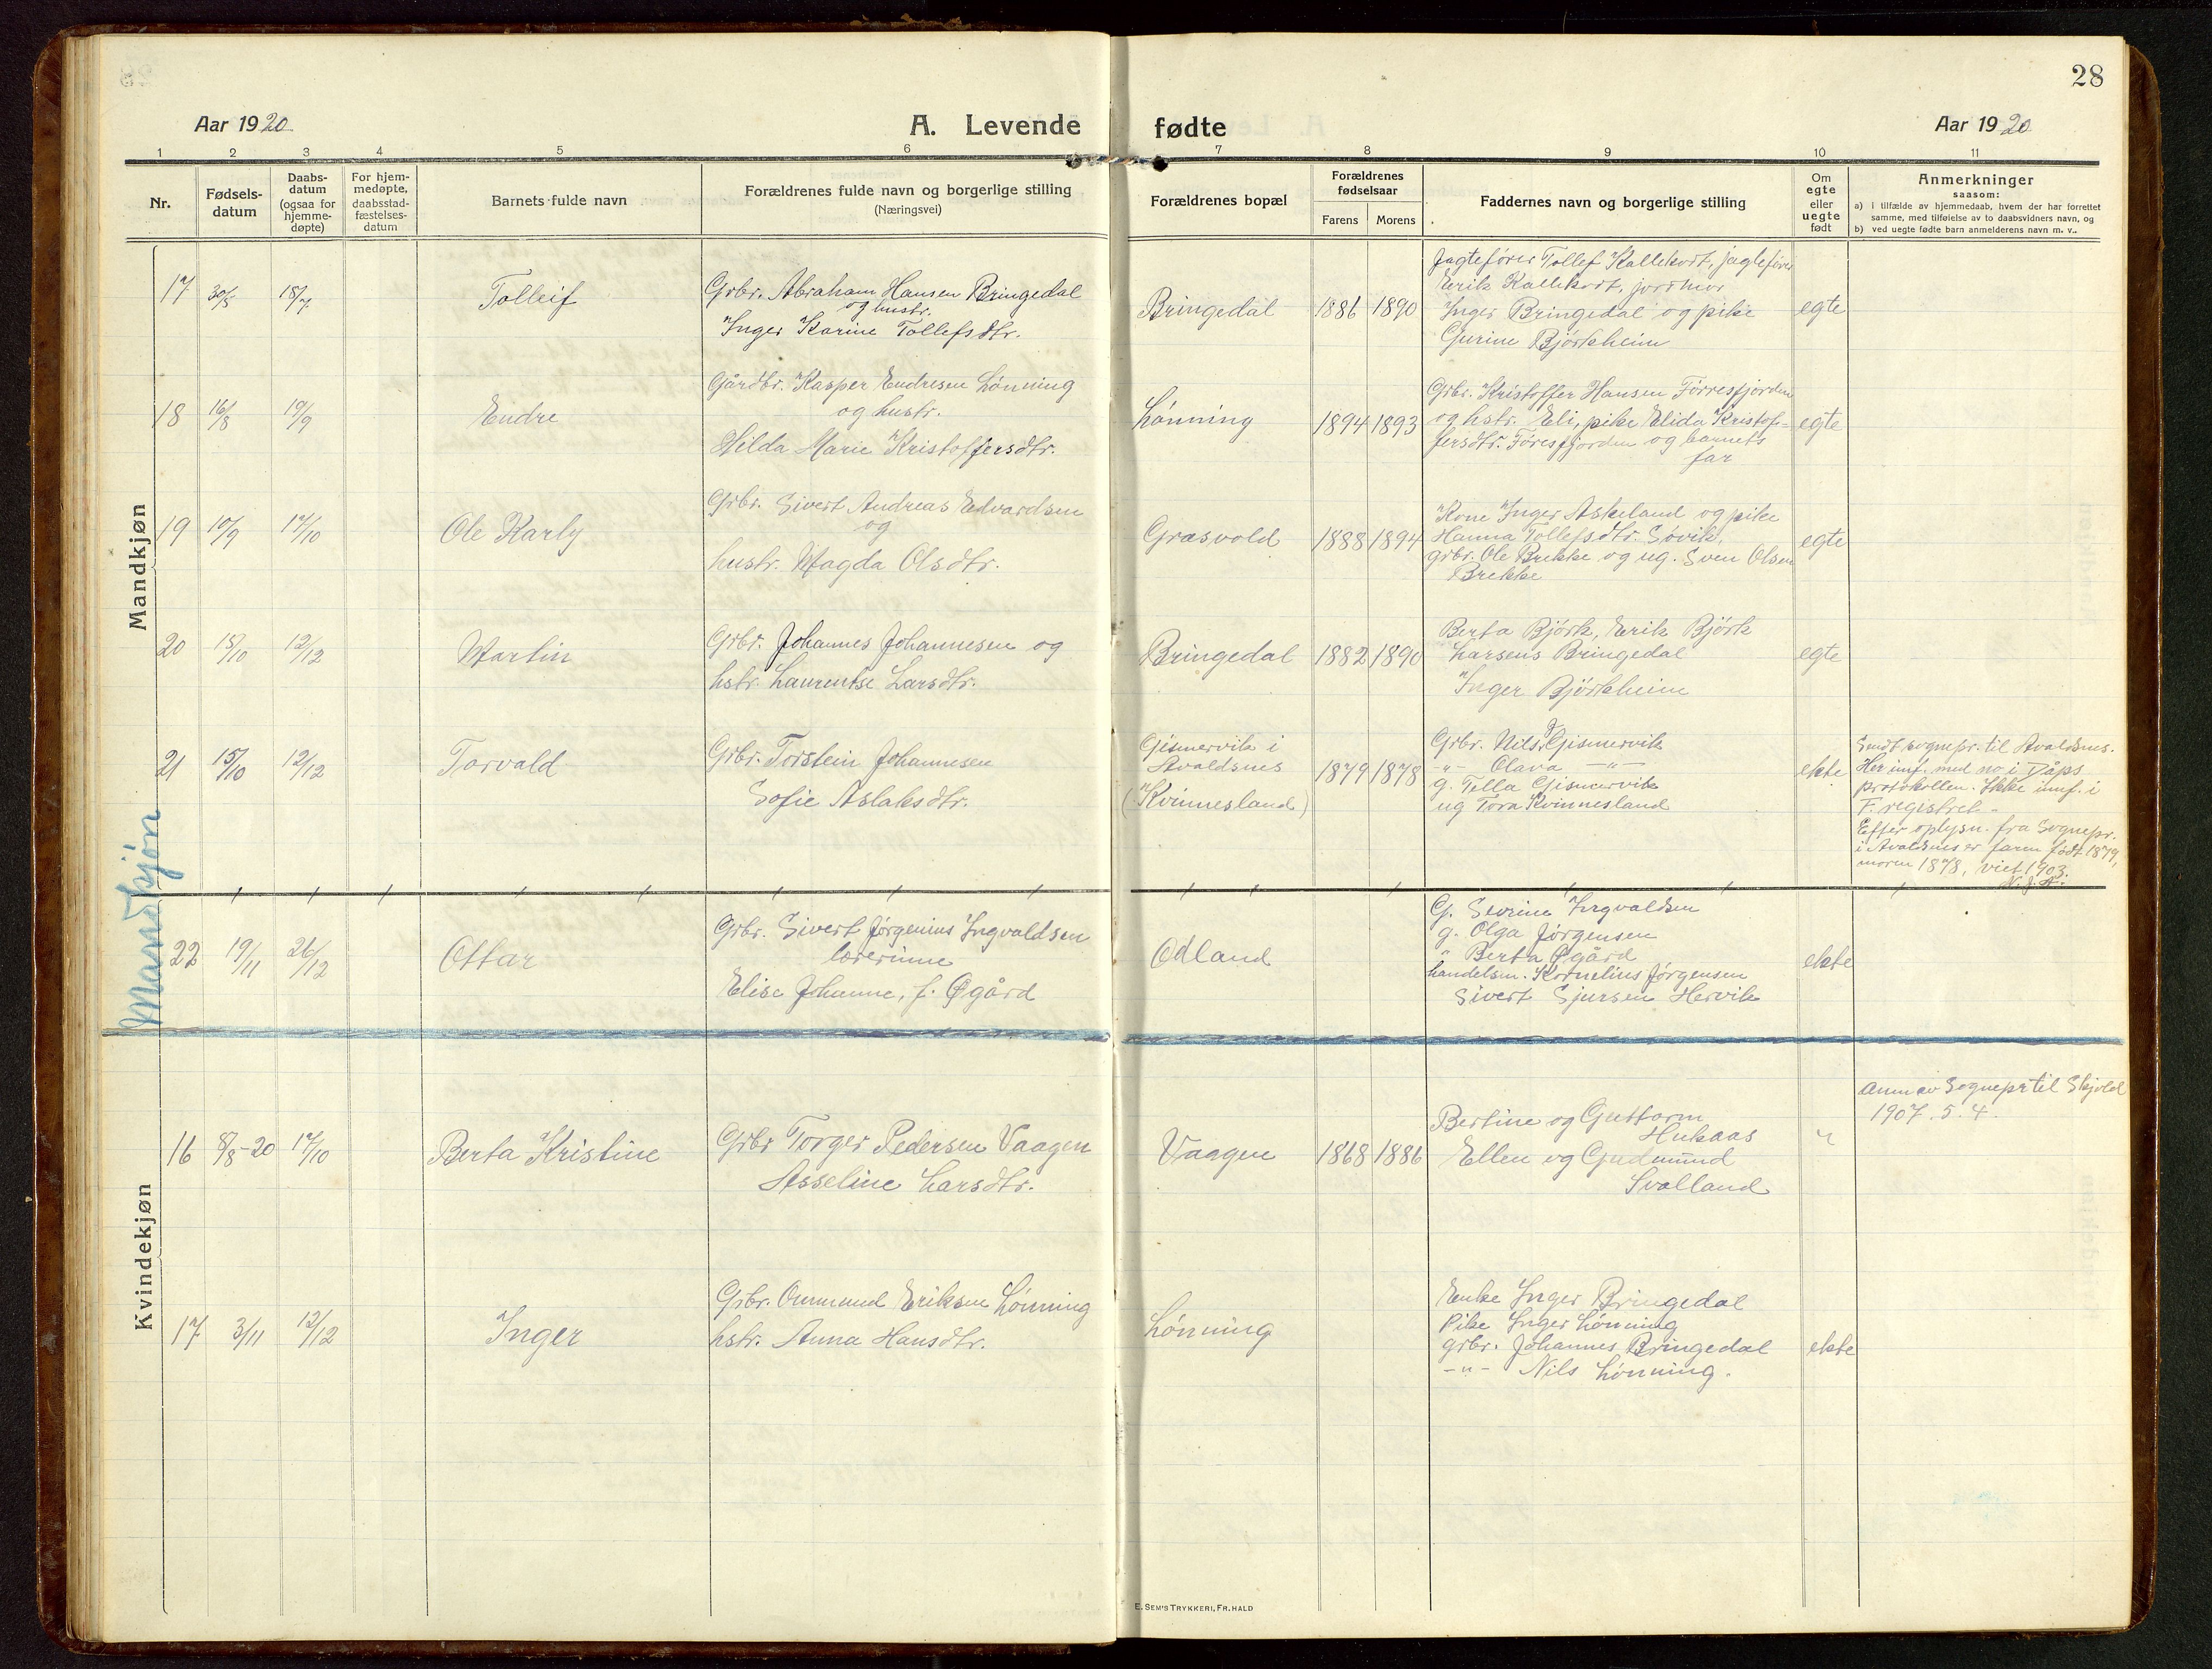 28
Aar 1920
A. Levende
fødte
Aar 1920
1 2 3 4 5 6 7 8 9 10 11
Nr.
Fødsels-
datum
Daabs-
datum
(ogsaa for
hjemme-
døpte)
For hjem-
medøpte,
daabsstad-
fæstelses-
datum
Barnets fulde navn
Forældrenes fulde navn og borgerlige stilling
(Næringsvei)
Forældrenes bopæl
Forældrenes
fødselsaar
Farens Morens
Faddernes navn og borgerlige stilling
Om
egte
eller
uegte
født
Anmerkninger
saasom:
a) i tilfælde av hjemmedaab, hvem der har forrettet
samme, med tilføielse av to daabsvidners navn, og
b) ved uegte fødte barn anmelderens navn m. v..
Mandkjøn
17 30/5 18/7 Tolleif
Grbr. Abraham Hansen Bringedal
og hustr.
Inger Karine Tollefsdtr.
Bringedal 1886 1890
Jagtefører Tollef Kallekodt, jagtefører
Erik Kallekodt, jordmor
Inger Bringedal og pike
Gurine Bjørkheim
egte
18 16/8 19/9 Endre
Gårdbr. Kasper Endresen Lønning
og hustr.
Hilda Marie Kristoffersdtr.
Lønning 1894 1893
Grbr. Kristoffer Hansen Førresfjorden
og hstr. Eli, pike Elida Kristof-
fersdtr. Føresfjorden og barnets
far
egte
19 10/9 17/10 Ole Karly
Grbr. Sivert Andreas Edvardsen
og
hustr. Magda Olsdtr.
Grasvold 1888 1894
Kone Inger Askeland og pike
Hanna Tollefsdtr. Søvik,
grbr. Ole Brekke og ug. Sven Olsen
Brekke
egte
20 15/10 12/12 Martin
Grbr. Johannes Johannesen og
hstr. Laurentse Larsdtr.
Bringedal 1882 1890
Berta Bjørk, Erik Bjørk
Larsens Bringedal
Inger Bjørkheim
egte
21 15/10 12/12 Torvald
Grbr. Torstein Johannesen
Sofie Aslaksdtr.
Gismervik i
Avaldsnes
(Kvinnesland)
1879 1878
Grbr. Nils J Gismervik
-"- Olava -"-
g. Tella Gismervik
ug Tora Kvinnesland
ekte
Sendt sognepr. til Avaldsnes.
Her innf. med no i Dåps
protokollen. Ikke innf. i
F. registret -
Efter oplysn. fra Sognepr.
i Avaldsnes er faren født 1879,
moren 1878, viet 1903.
N. J. A.
Mandkjøn
22 19/11 26/12 Ottar
Grbr. Sivert Jørgenius Ingvaldsen
lærerinne
Elise Johanne, f. Øgård
Odland
G. Sevrine Ingvaldsen
g. Olga Jørgensen
" Berta Øgård
handelsm. Kornelius Jørgensen
Sivert Sjursen Hervik
ekte
Kvindekjøn
16 8/8-20 17/10 Berta Kristine
Grbr Torger Pedersen Vaagen
Asseline Larsdtr.
Vaagen 1868 1886
Bertine og Guttorm
Hukaas
Ellen og Gudmund
Svalland
"
Anm av Sognepr til Skjold
1907. 5. 4.
17 3/11 12/12 Inger
Grbr. Ommund Eriksen Lønning
hstr. Anna Hansdtr.
Lønning
Enke Inger Bringedal
Pike Inger Lønning
grbr. Johannes Bringedal
-"- Nils Lønning.
ekte
E. SEM'S TRYKKERI, FR. HALD